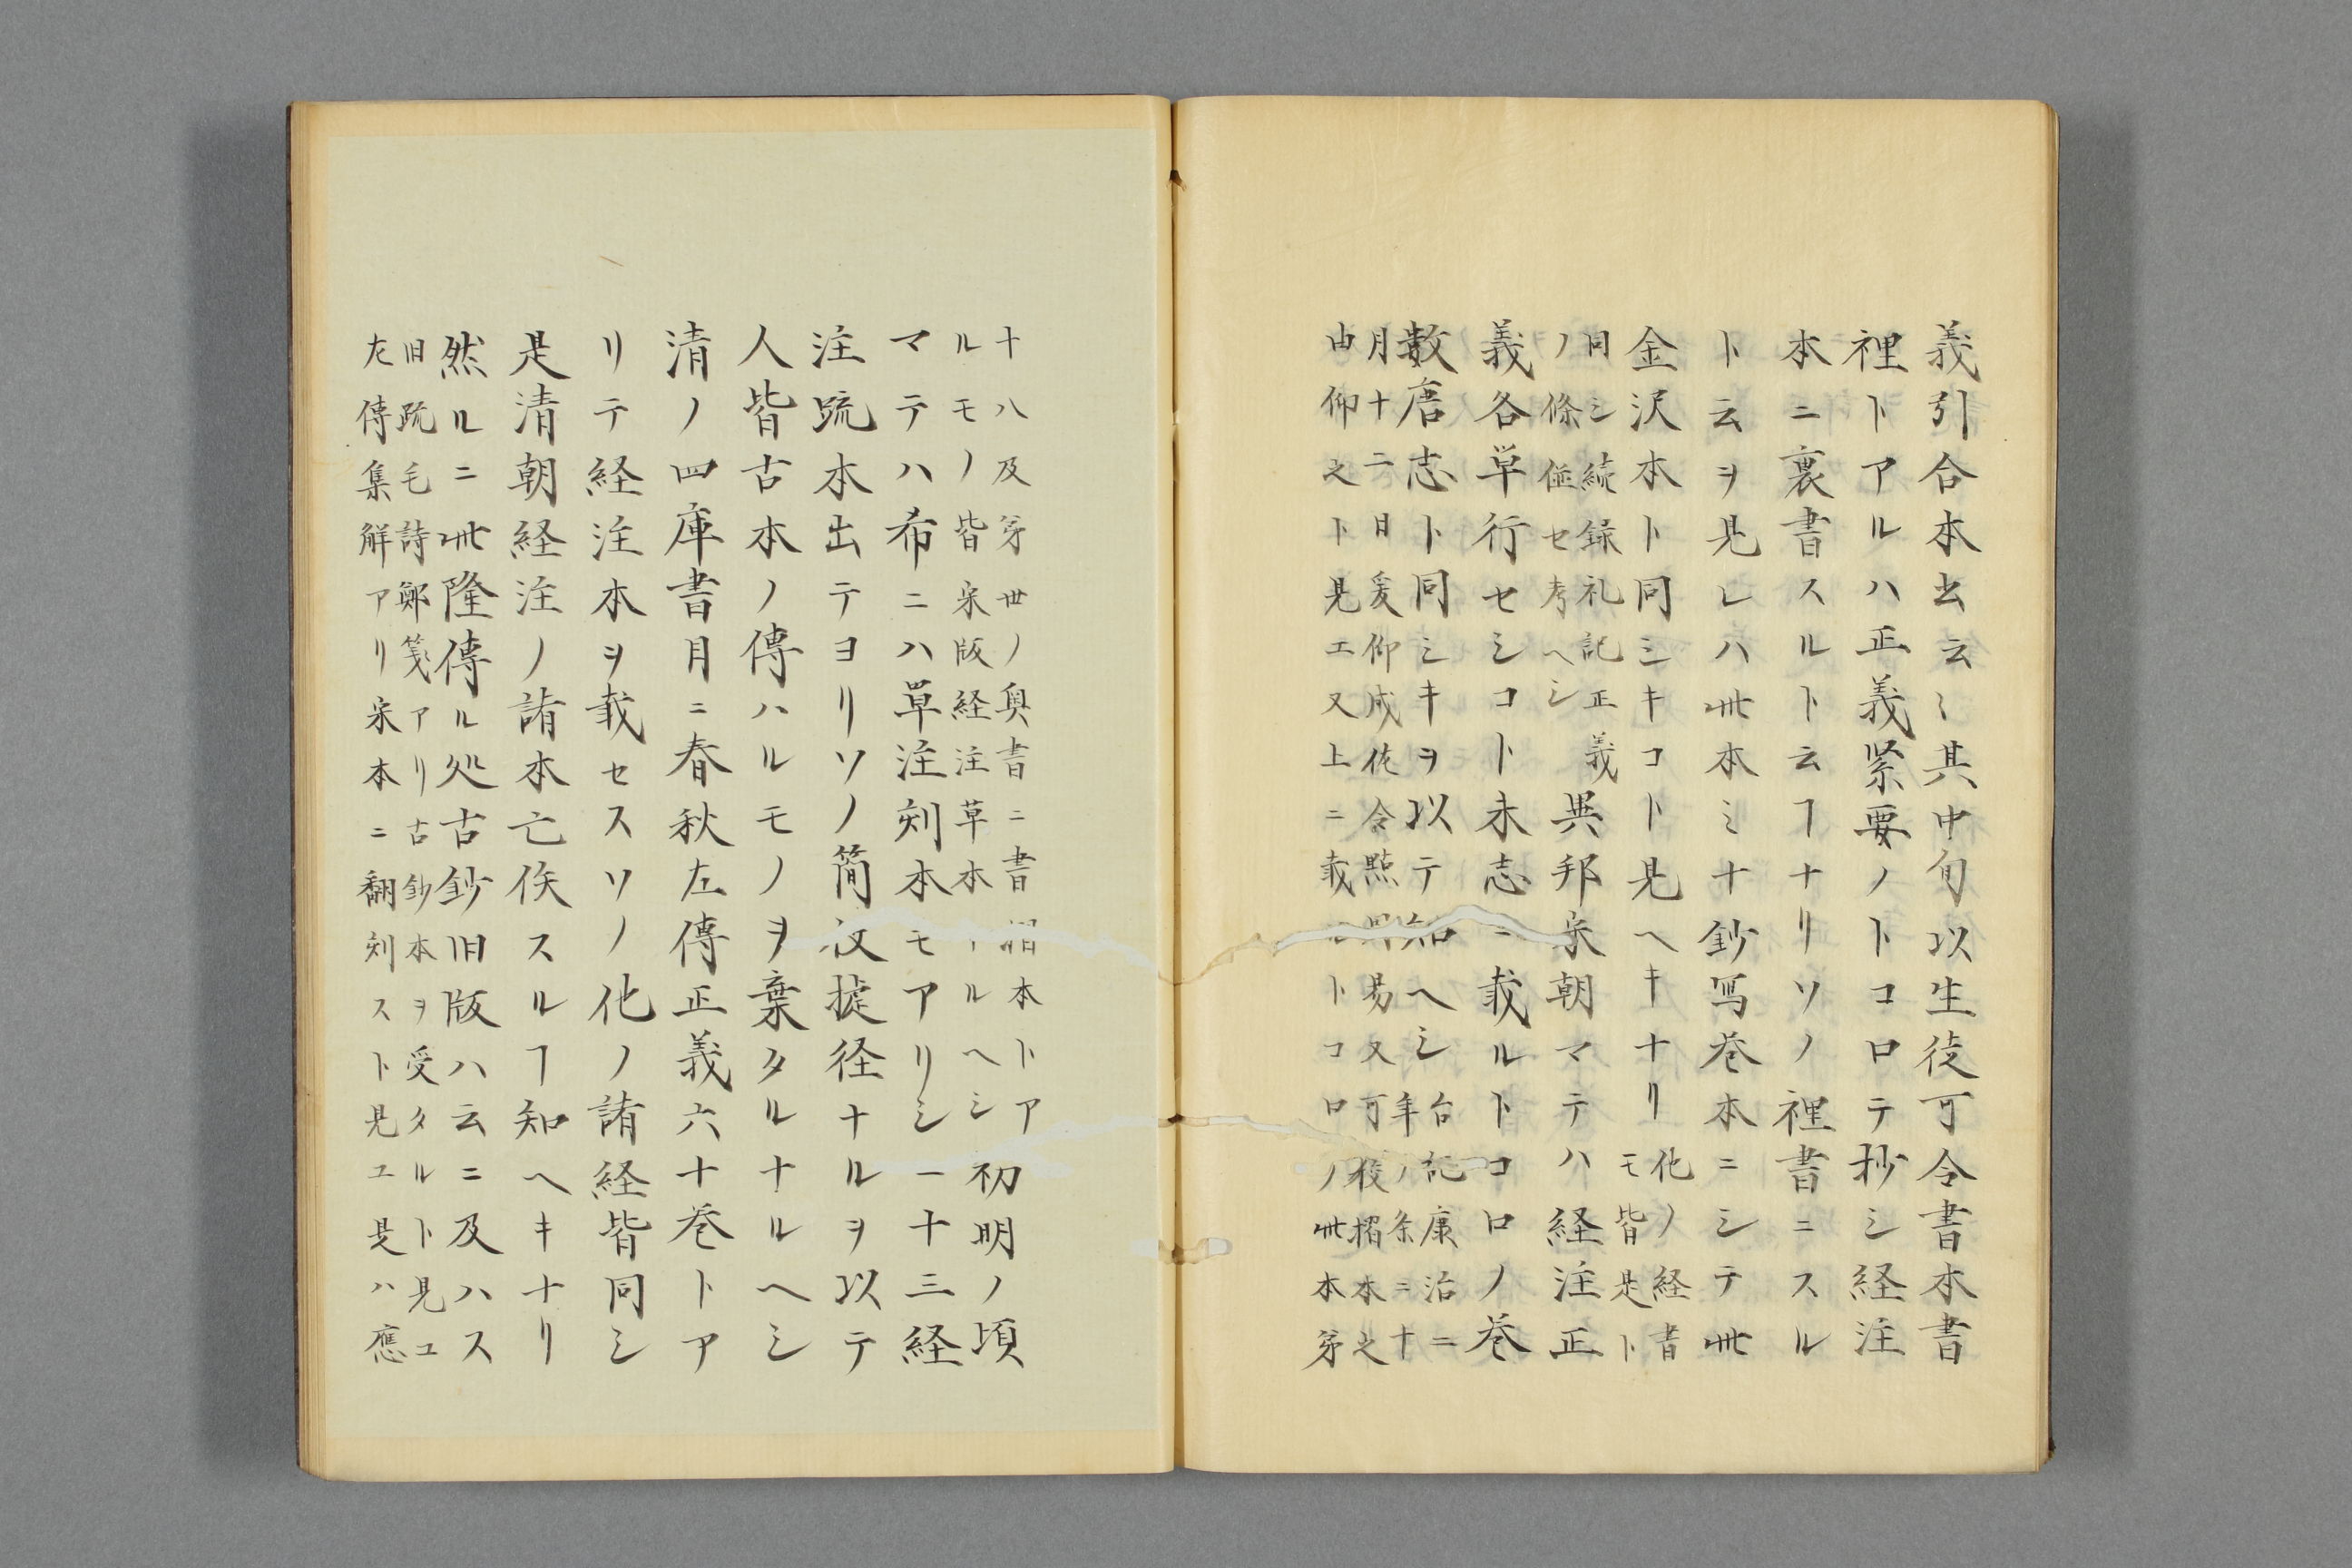 義引合本出云〻其中旬以生徒可令書本書
裡トアルハ正義緊要ノトコロテ抄シ経注
本ニ裏書スルト云ヿナリソノ裡書ニスル
ト云ヲ見レハ此本ミナ鈔写巻本ニシテ此
金沢本ト同シキコト見ヘキナリ
他ノ経書
モ皆是ト
同シ続録礼記正義
ノ條併セ考ヘシ
異邦宋朝マテハ経注正
義各単行セシコト未志ニ載ルトコロノ巻
数唐志ト同シキヲ以テ知ヘシ
台記康治二
年ノ条ニ十
月十二日爰仰成佐令點周易又可校摺本之
由仰之ト見エ又上ニ載ルトコロノ此本第
十八及第丗ノ奥書ニ書摺本トア
ルモノ皆宋版経注草本ナルヘシ
初明ノ頃
マテハ希ニハ単注刻本モアリシー十三経
注疏本出テヨリソノ簡汶捷径ナルヲ以テ
人皆古本ノ傳ハルモノヲ棄タルナルヘシ
清ノ四庫書目ニ春秋左傳正義六十巻トア
リテ経注本ヲ載セスソノ他ノ諸経皆同シ
是清朝経注ノ諸本亡佚スルヿ知ヘキナリ
然ルニ此隆傳ル処古鈔旧版ハ云ニ及ハス
旧疏毛詩鄭箋アリ古鈔本ヲ受タルト見コ
左傳集解アリ宋本ニ翻刻スト見ユ是ハ應